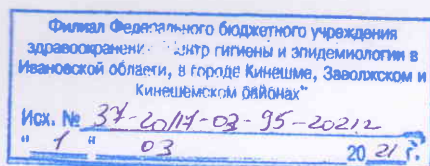 Филиал Федерального бюджетного учреждения
здравоохранения "Центр гигиены и эпидемиологии в
Ивановской области, в городе Кинешме, Заволжском и
Кинешемском районах"
Исх. № 37-20/17-03-95-2021г
" 1 " 03 2021 г.